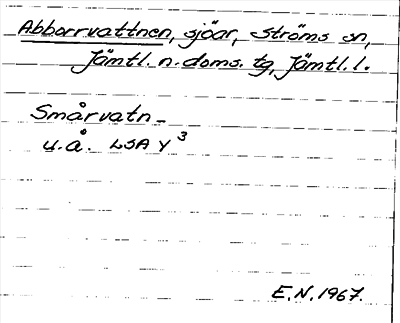 Abborrvattnen, sjöar, Ströms sn,
Jämtl. n. doms. tg, Jämtl. l.
Smårvatn -
u. å. LSA Y 3
E. N. 1967.